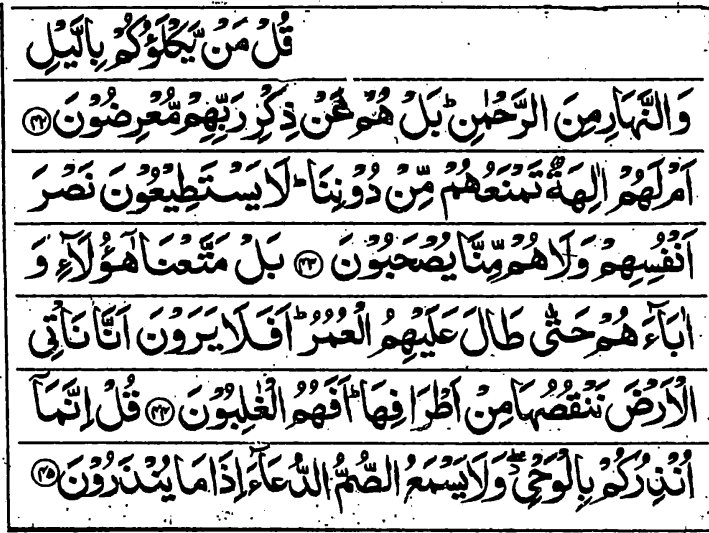 قُلْ مَنْ يَّكْلَؤُكُمْ بِالَّيْلِ
وَالنَّهَارِ مِنَ الرَّحْمٰنِ ؕ بَلْ هُمْ عَنْ ذِكْرِ رَبِّهِمْ مُّعْرِضُوْنَ ﴿۴۲﴾
اَمْ لَهُمْ اٰلِهَةٌ تَمْنَعُهُمْ مِّنْ دُوْنِنَا ؕ لَا يَسْتَطِيْعُوْنَ نَصْرَ
اَنْفُسِهِمْ وَلَا هُمْ مِّنَّا يُصْحَبُوْنَ ﴿۴۳﴾ بَلْ مَتَّعْنَا هٰٓؤُلَآءِ وَ
اٰبَآءَهُمْ حَتّٰى طَالَ عَلَيْهِمُ الْعُمُرُ ؕ اَفَلَا يَرَوْنَ اَنَّا نَاْتِى
الْاَرْضَ نَنْقُصُهَا مِنْ اَطْرَافِهَا ؕ اَفَهُمُ الْغٰلِبُوْنَ ﴿۴۴﴾ قُلْ اِنَّمَآ
اُنْذِرُكُمْ بِالْوَحْىِ ۖ وَلَا يَسْمَعُ الصُّمُّ الدُّعَآءَ اِذَا مَا يُنْذَرُوْنَ ﴿۴۵﴾